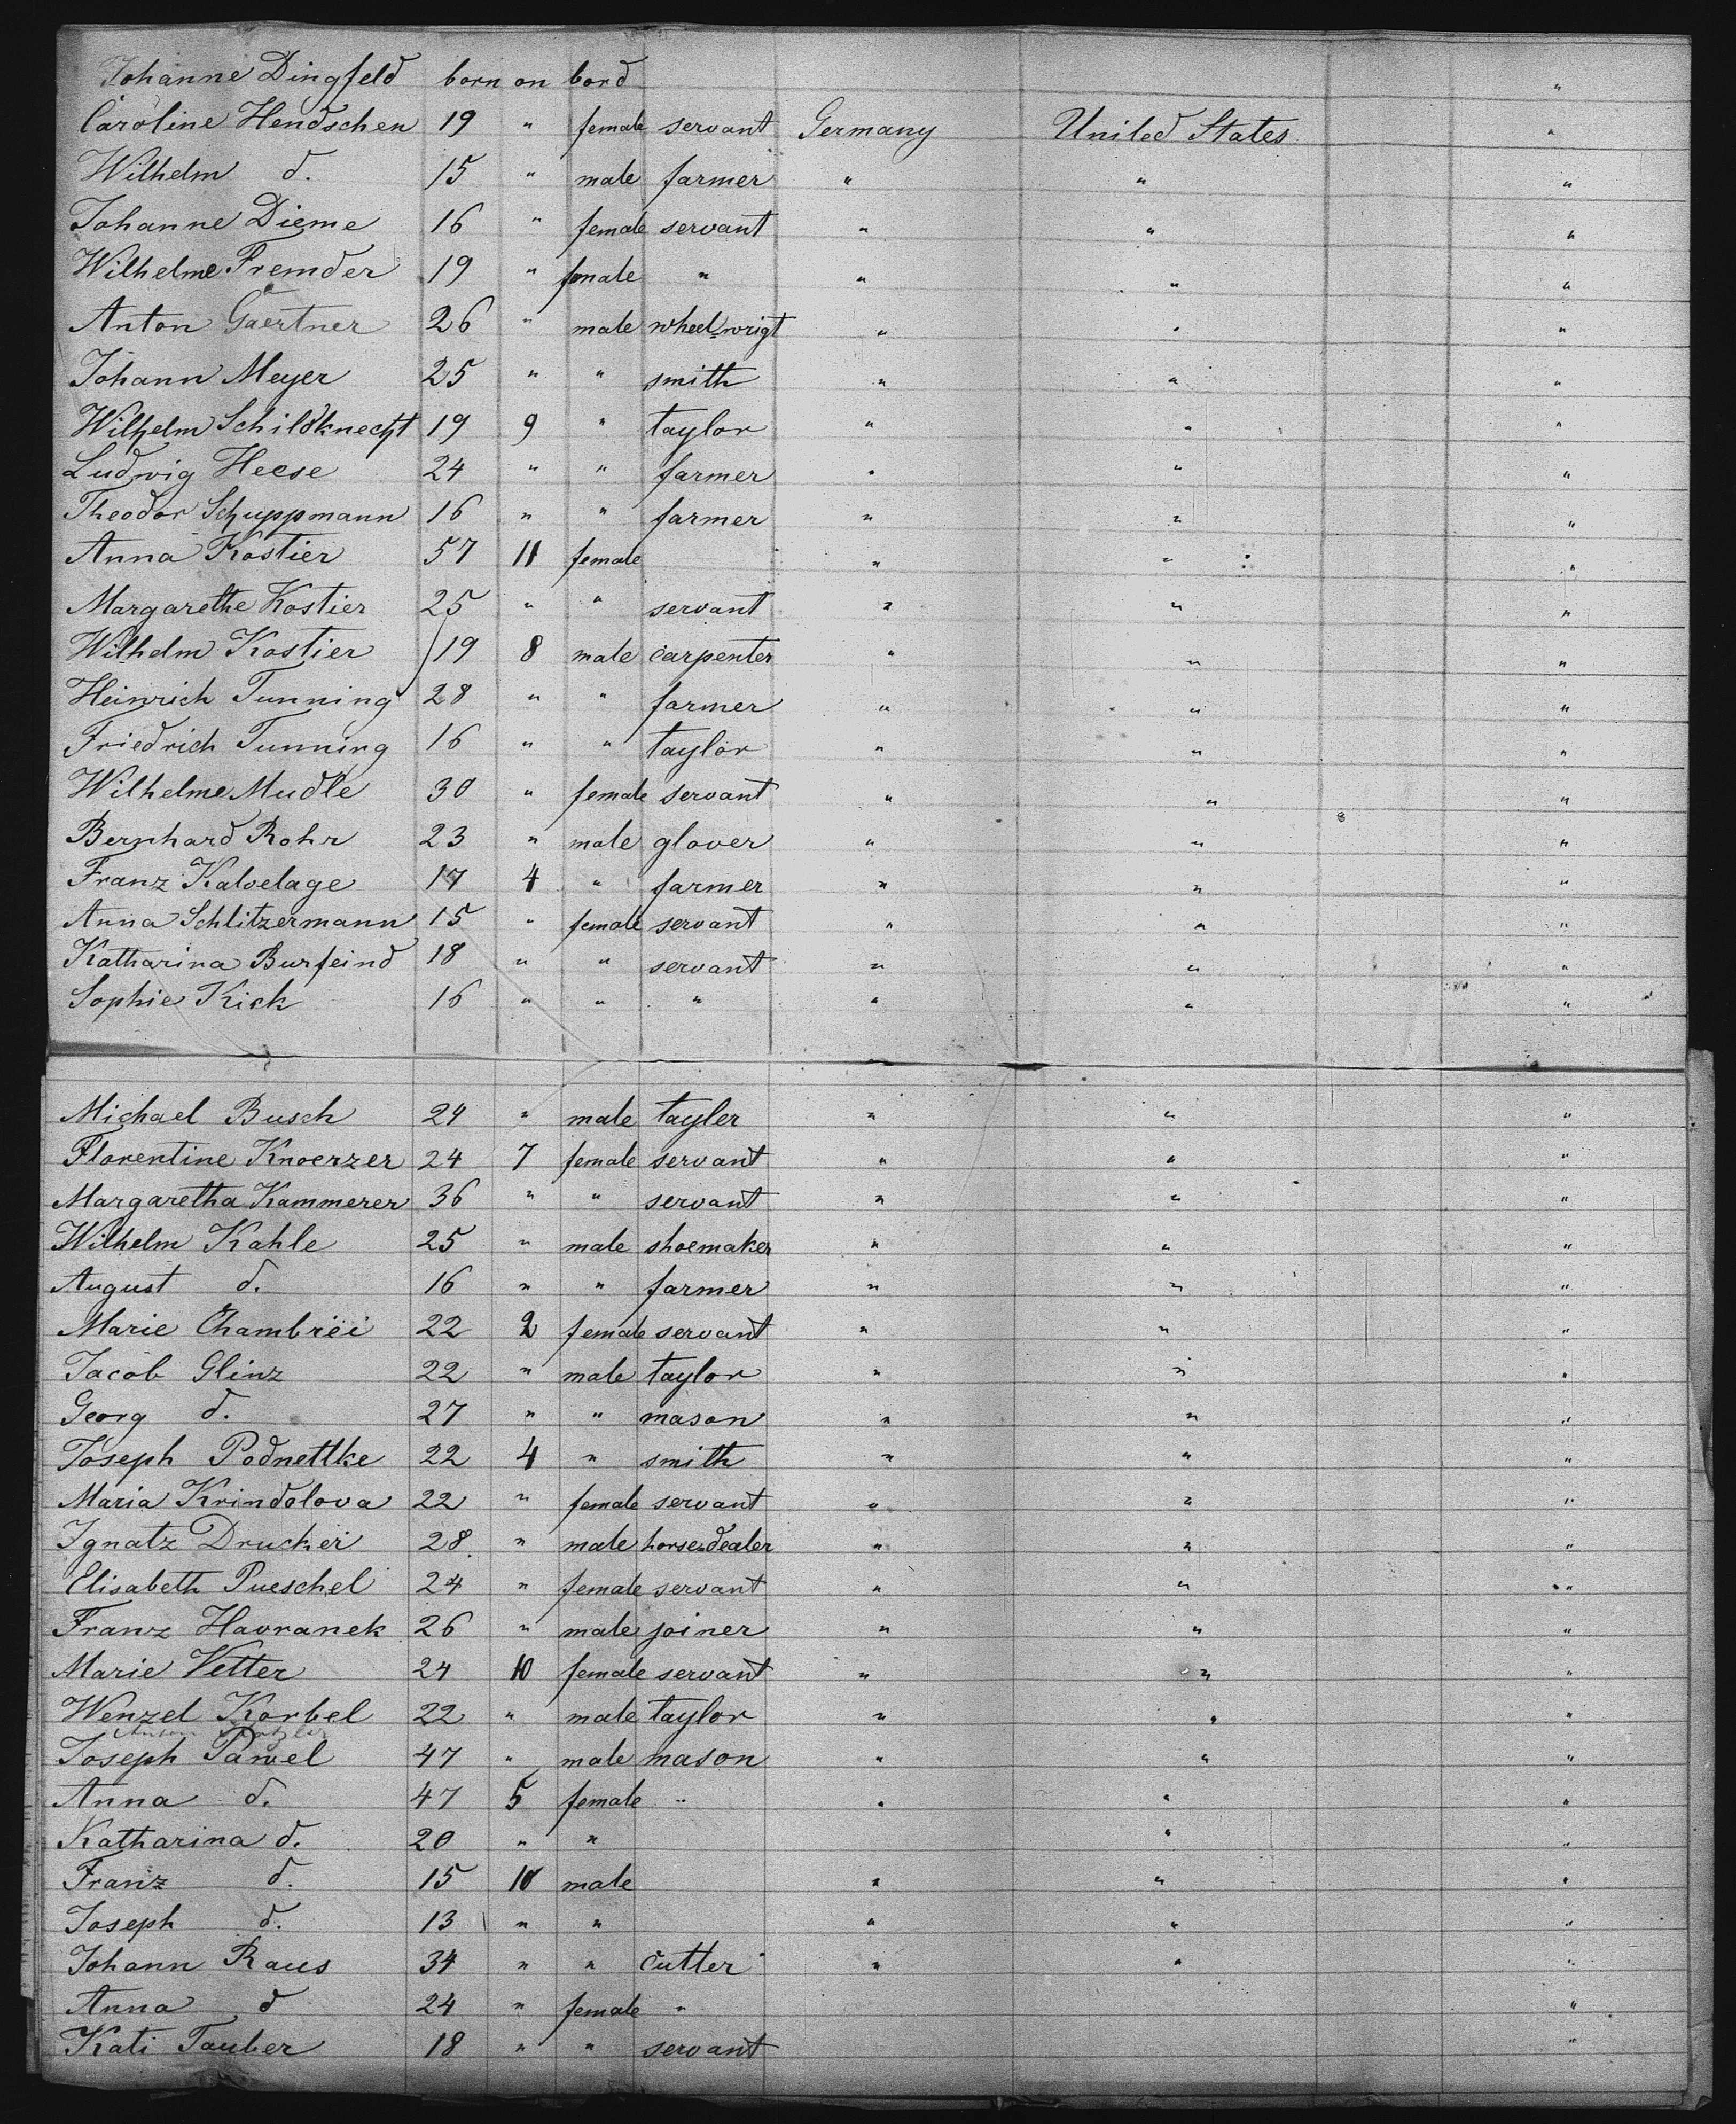 Johanne Dingfeld born on bord "
Caroline Hendschen 19 " female servant Germany United States "
Wilhelm d. 15 " male farmer " " "
Johanne Dieme 16 " female servant " " "
Wilhelme Fremder 19 " female " " " "
Anton Gaertner 26 " male wheelwrigt " " "
Johann Meyer 25 " " smith " " "
Wilhelm Schildknecht 19 9 " taylor " " "
Ludwig Heese 24 " " farmer " " "
Theodor Schuppmann 16 " " farmer " " "
Anna Kostier 57 11 female " " "
Margarethe Kostier 25 " " servant " " "
Wilhelm Kostier 19 8 male carpenter " " "
Heinrich Tunning 28 " " farmer " " "
Friedrich Tunning 16 " " taylor " " "
Wilhelme Mudle 30 " female servant " " "
Bernhard Rohr 23 " male glover " " "
Franz Kalvelage 17 4 " farmer " " "
Anna Schlitzermann 15 " female servant " " "
Katharina Burfeind 18 " " servant " " "
Sophie Kick 16 " " " " " "
Michael Busch 24 " male tayler " " "
Florentine Knoerzer 24 7 female servant " " "
Margaretha Kammerer 36 " " servant " " "
Wilhelm Kahle 25 " male shoemaker " " "
August d. 16 " " farmer " " "
Marie Chambrëi 22 2 female servant " " "
Jacob Glinz 22 " male taylor " " "
Georg d. 27 " " mason " " "
Joseph Podnettke 22 4 " smith " " "
Maria Krindolova 22 " female servant " " "
Ignatz Drucker 28 " male horse dealer " " "
Elisabeth Pueschel 24 " female servant " " "
Franz Havranek 26 " male joiner " " "
Marie Vetter 24 10 female servant " " "
Wenzel Korbel 22 " male taylor " " "
Joseph Pawel 47 " male mason " " "
Anna d. 47 5 female " " " "
Katharina d. 20 " " " "
Franz d. 15 10 male " " "
Joseph d. 13 " " " " "
Johann Raus 34 " " cutter " " "
Anna d 24 " female " "
Kati Tauber 18 " " servant "